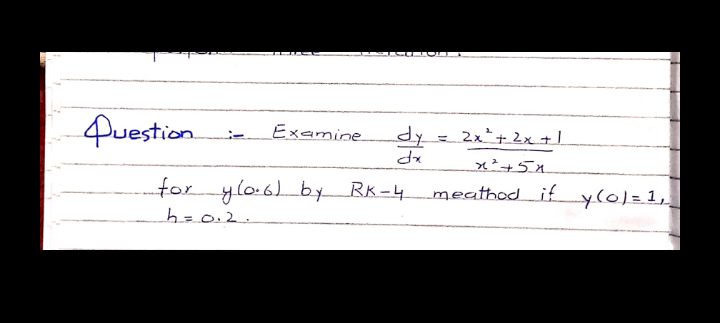 Question :- Examine dy/dx = 2x² + 2x + 1 / x² + 5x
for y(0.6) by RK-4 meathod if y(0) = 1,
h = 0.2.